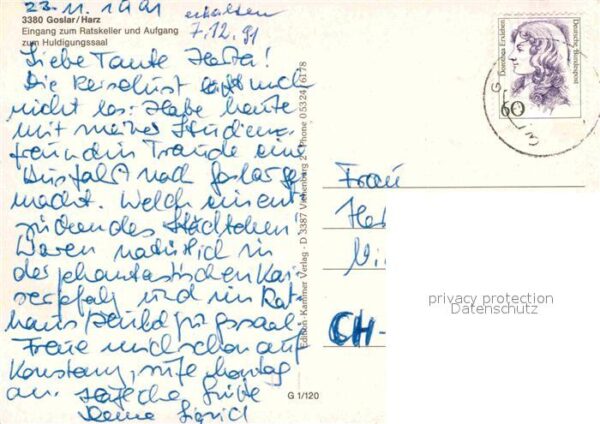 23. 11. 1991
erhalten
7.12.91
3380 Goslar/Harz
Eingang zum Ratskeller und Aufgang
zum Huldigungssaal
Liebe Tante Herta!
Die Reiselust läßt mich
nicht los: Habe heute
mit meiner Studien-
freundin Traude eine
Ausfahrt nach Goslar ge-
macht. Welch ein ent-
zückendes Städtchen!
Waren natürlich in
der phantastischen Kai-
serpfalz und im Rat-
haus Huldigungssaal.
Freue mich schon auf
Konstanz, rufe
an. Herzliche Grüße
Deine Sigrid
Edition · Kammer Verlag · D 3387 Vienenburg 2 · Phone 0 53 24 / 6178
G 1/120
Dorothea Erxleben
Deutsche Bundespost
60
Frau
CH-
privacy protection
Datenschutz